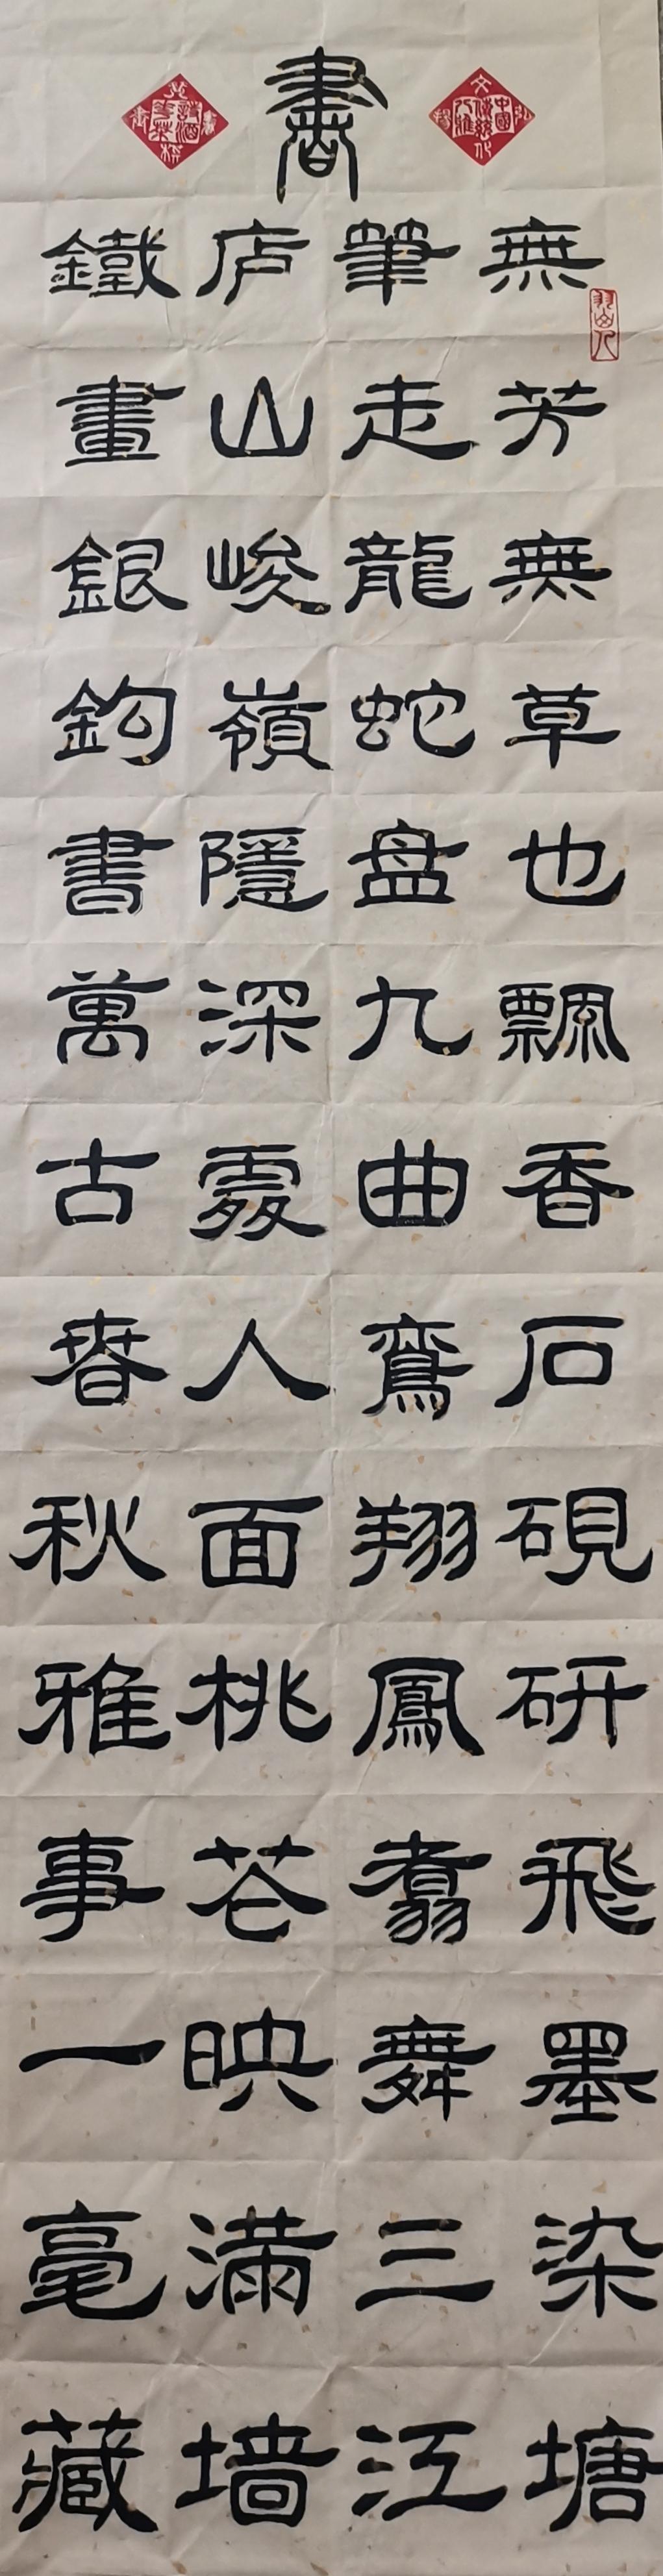 書
無芳無草也飄香石硯研飛墨染塘
筆走龍蛇盘九曲鸞翔鳳翥舞三江
庐山峻嶺隱深處人面桃花映滿墙
鐵畫銀鈎書萬古春秋雅事一毫藏